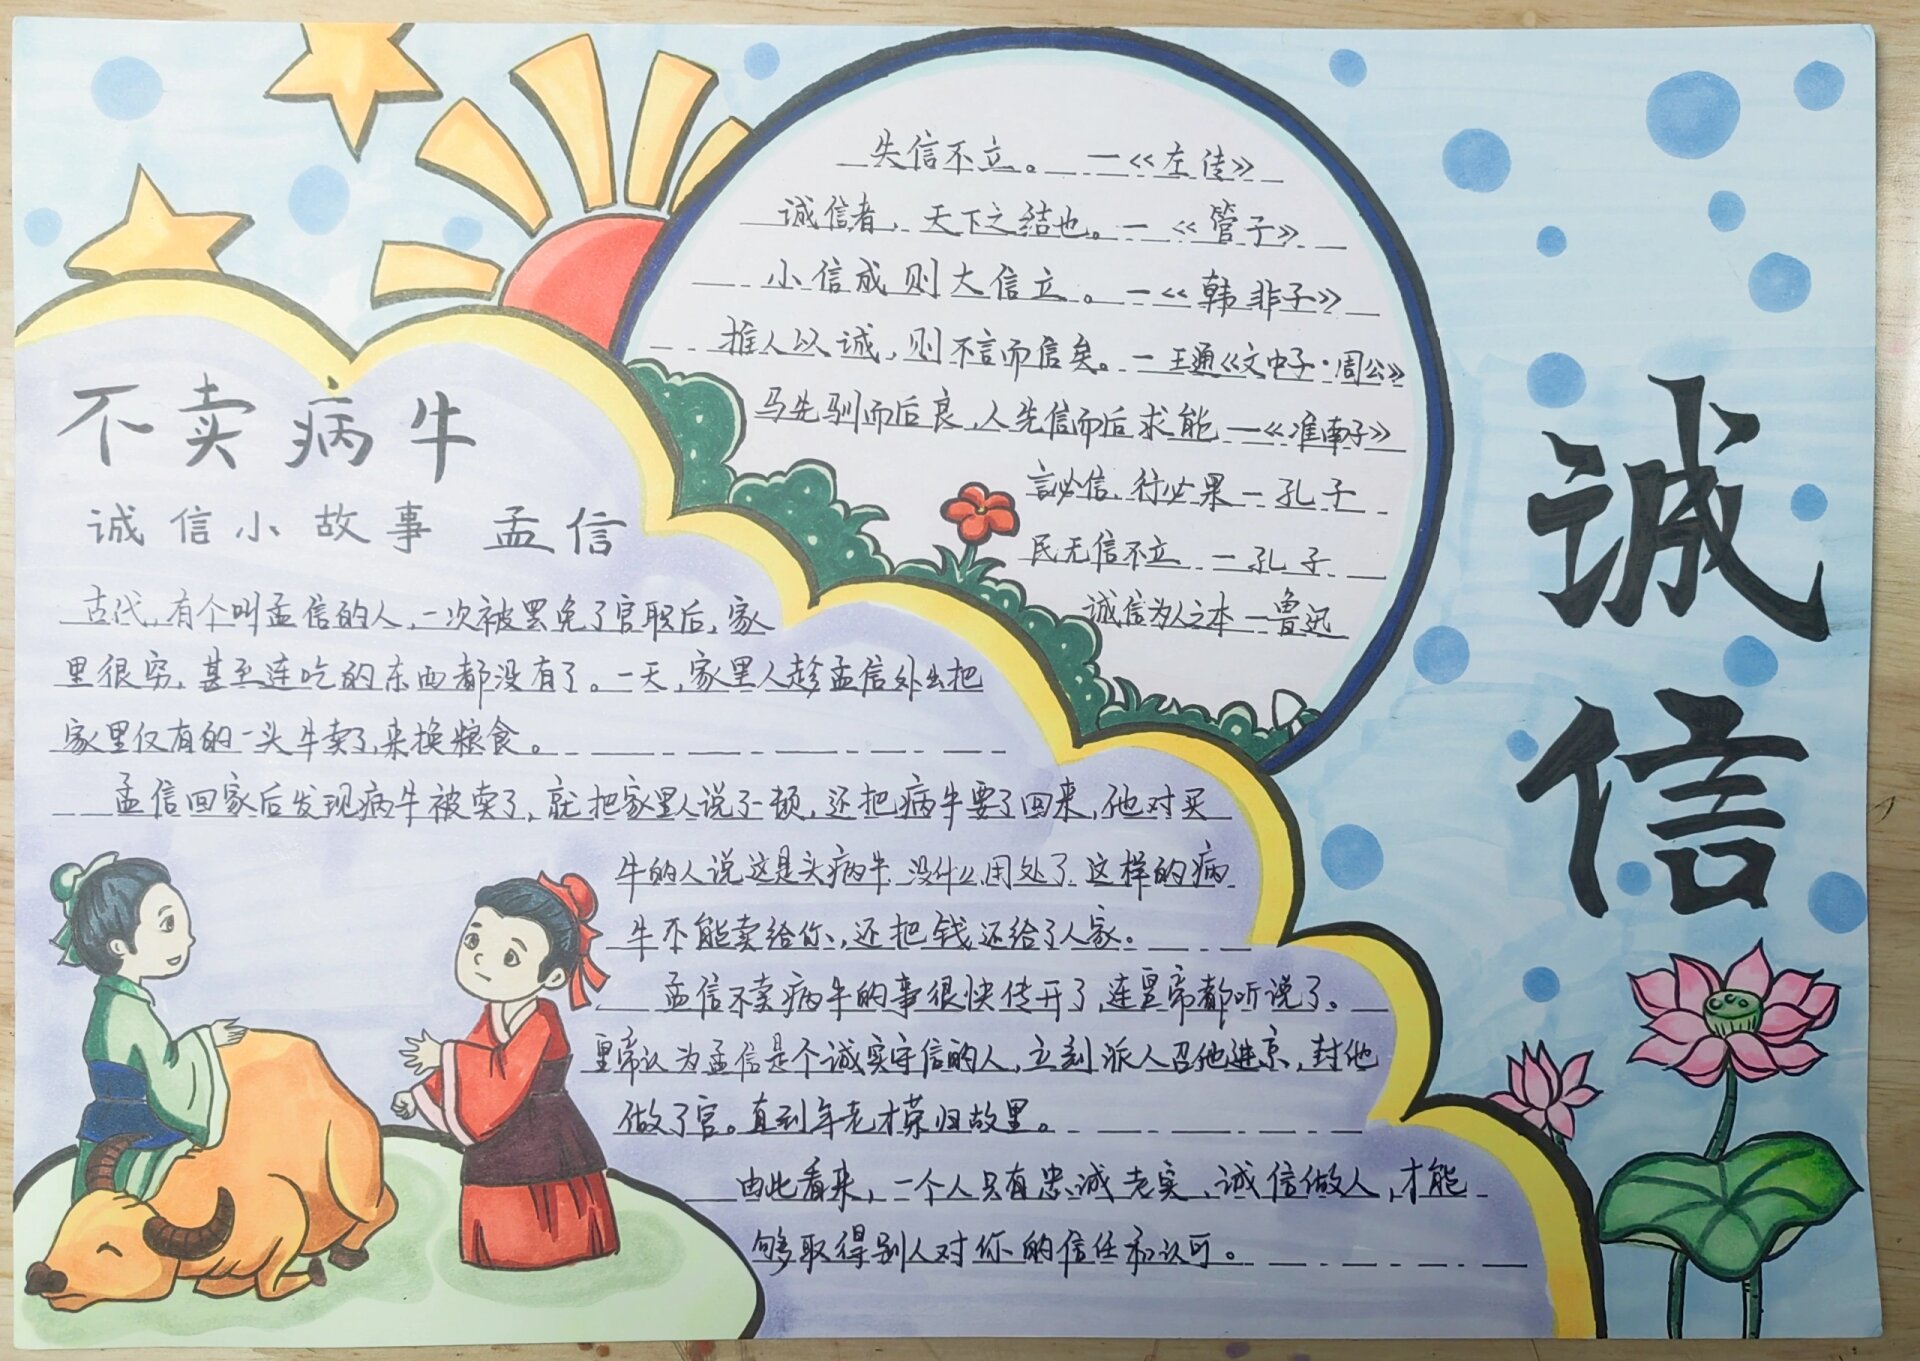 失信不立。—《左传》
诚信者，天下之结也。—《管子》
小信成则大信立。—《韩非子》
推人以诚，则不言而信矣。—王通《文中子·周公》
马先驯而后良，人先信而后求能—《淮南子》
言必信，行必果—孔子
民无信不立—孔子
诚信为人之本—鲁迅
诚信
不卖病牛
诚信小故事 孟信
古代，有个叫孟信的人，一次被罢免了官职后，家
里很穷，甚至连吃的东西都没有了。一天，家里人趁孟信外出把
家里仅有的一头牛卖了，来换粮食。
孟信回家后发现病牛被卖了，就把家里人说了一顿，还把病牛要了回来，他对买
牛的人说这是头病牛 没什么用处了 这样的病
牛不能卖给你，还把钱还给了人家。
孟信不卖病牛的事很快传开了，连皇帝都听说了。
皇帝认为孟信是个诚实守信的人，立刻派人召他进京，封他
做了官。直到年老才荣归故里。
由此看来，一个人只有忠诚老实，诚信做人，才能
够取得别人对你的信任和认可。